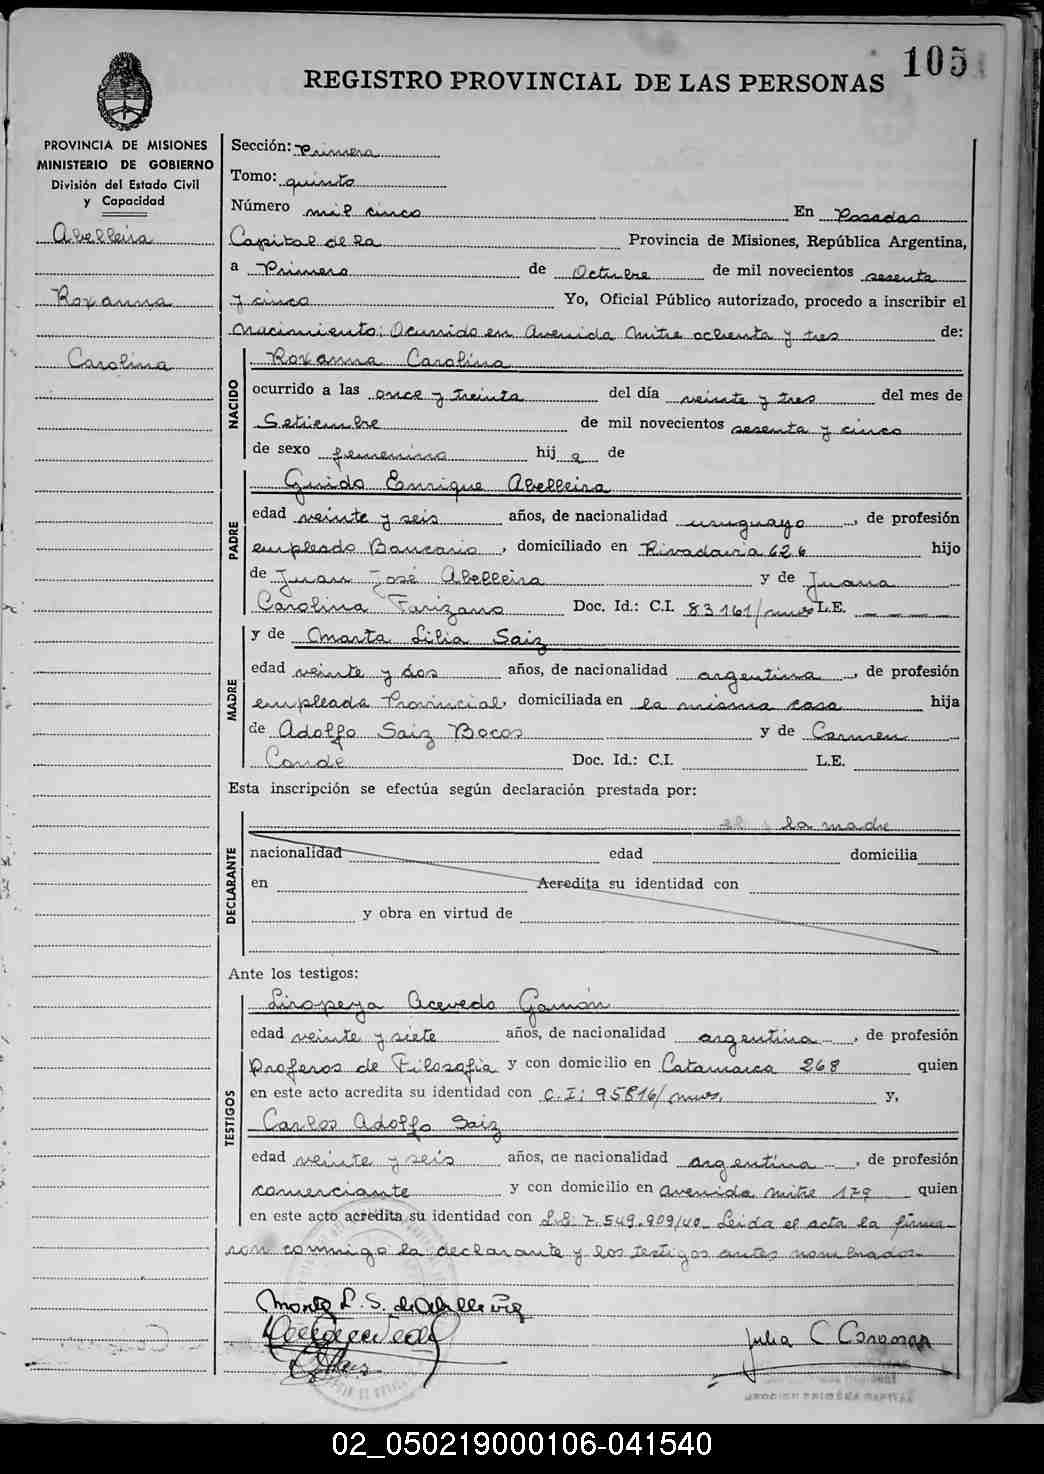 105
REGISTRO PROVINCIAL DE LAS PERSONAS
PROVINCIA DE MISIONES
MINISTERIO DE GOBIERNO
División del Estado Civil
y Capacidad
Abelleira
Roxanna
Carolina
Sección: Primera
Tomo: quinto
Número mil cinco En Posadas
Capital de la Provincia de Misiones, República Argentina,
a Primero de Octubre de mil novecientos sesenta
y cinco Yo, Oficial Público autorizado, procedo a inscribir el
Nacimiento: Ocurrido en Avenida Mitre ochenta y tres de:
NACIDO
Roxanna Carolina
ocurrido a las once y treinta del día veinte y tres del mes de
Setiembre de mil novecientos sesenta y cinco
de sexo femenino hij a de
PADRE
Guido Enrique Abelleira
edad veinte y seis años, de nacionalidad uruguayo, de profesión
empleado Bancario, domiciliado en Rivadavia 626 hijo
de Juan José Abelleira y de Juana
Carolina Farizano Doc. Id.: C.I. 83161/mnes L.E. — — — —
MADRE
y de Marta Lilia Saiz
edad veinte y dos años, de nacionalidad argentina, de profesión
empleada Provincial, domiciliada en la misma casa hija
de Adolfo Saiz Bocos y de Carmen
Conde Doc. Id.: C.I. L.E.
Esta inscripción se efectúa según declaración prestada por:
DECLARANTE
la madre
nacionalidad edad domicilia
en Acredita su identidad con
y obra en virtud de
Ante los testigos:
TESTIGOS
Liropeya Acevedo Gamón
edad veinte y siete años, de nacionalidad argentina, de profesión
Profesor de Filosofía y con domicilio en Catamarca 268 quien
en este acto acredita su identidad con C.I: 95816/mnes. y,
Carlos Adolfo Saiz
edad veinte y seis años, de nacionalidad argentina, de profesión
comerciante y con domicilio en avenida mitre 179 quien
en este acto acredita su identidad con L.E 7.549.909/40_ Leida el acta la firma-
ron conmigo la declarante y los testigos antes nombrados.-
Marta L. S. de Abelleira
Julia C
02_050219000106-041540